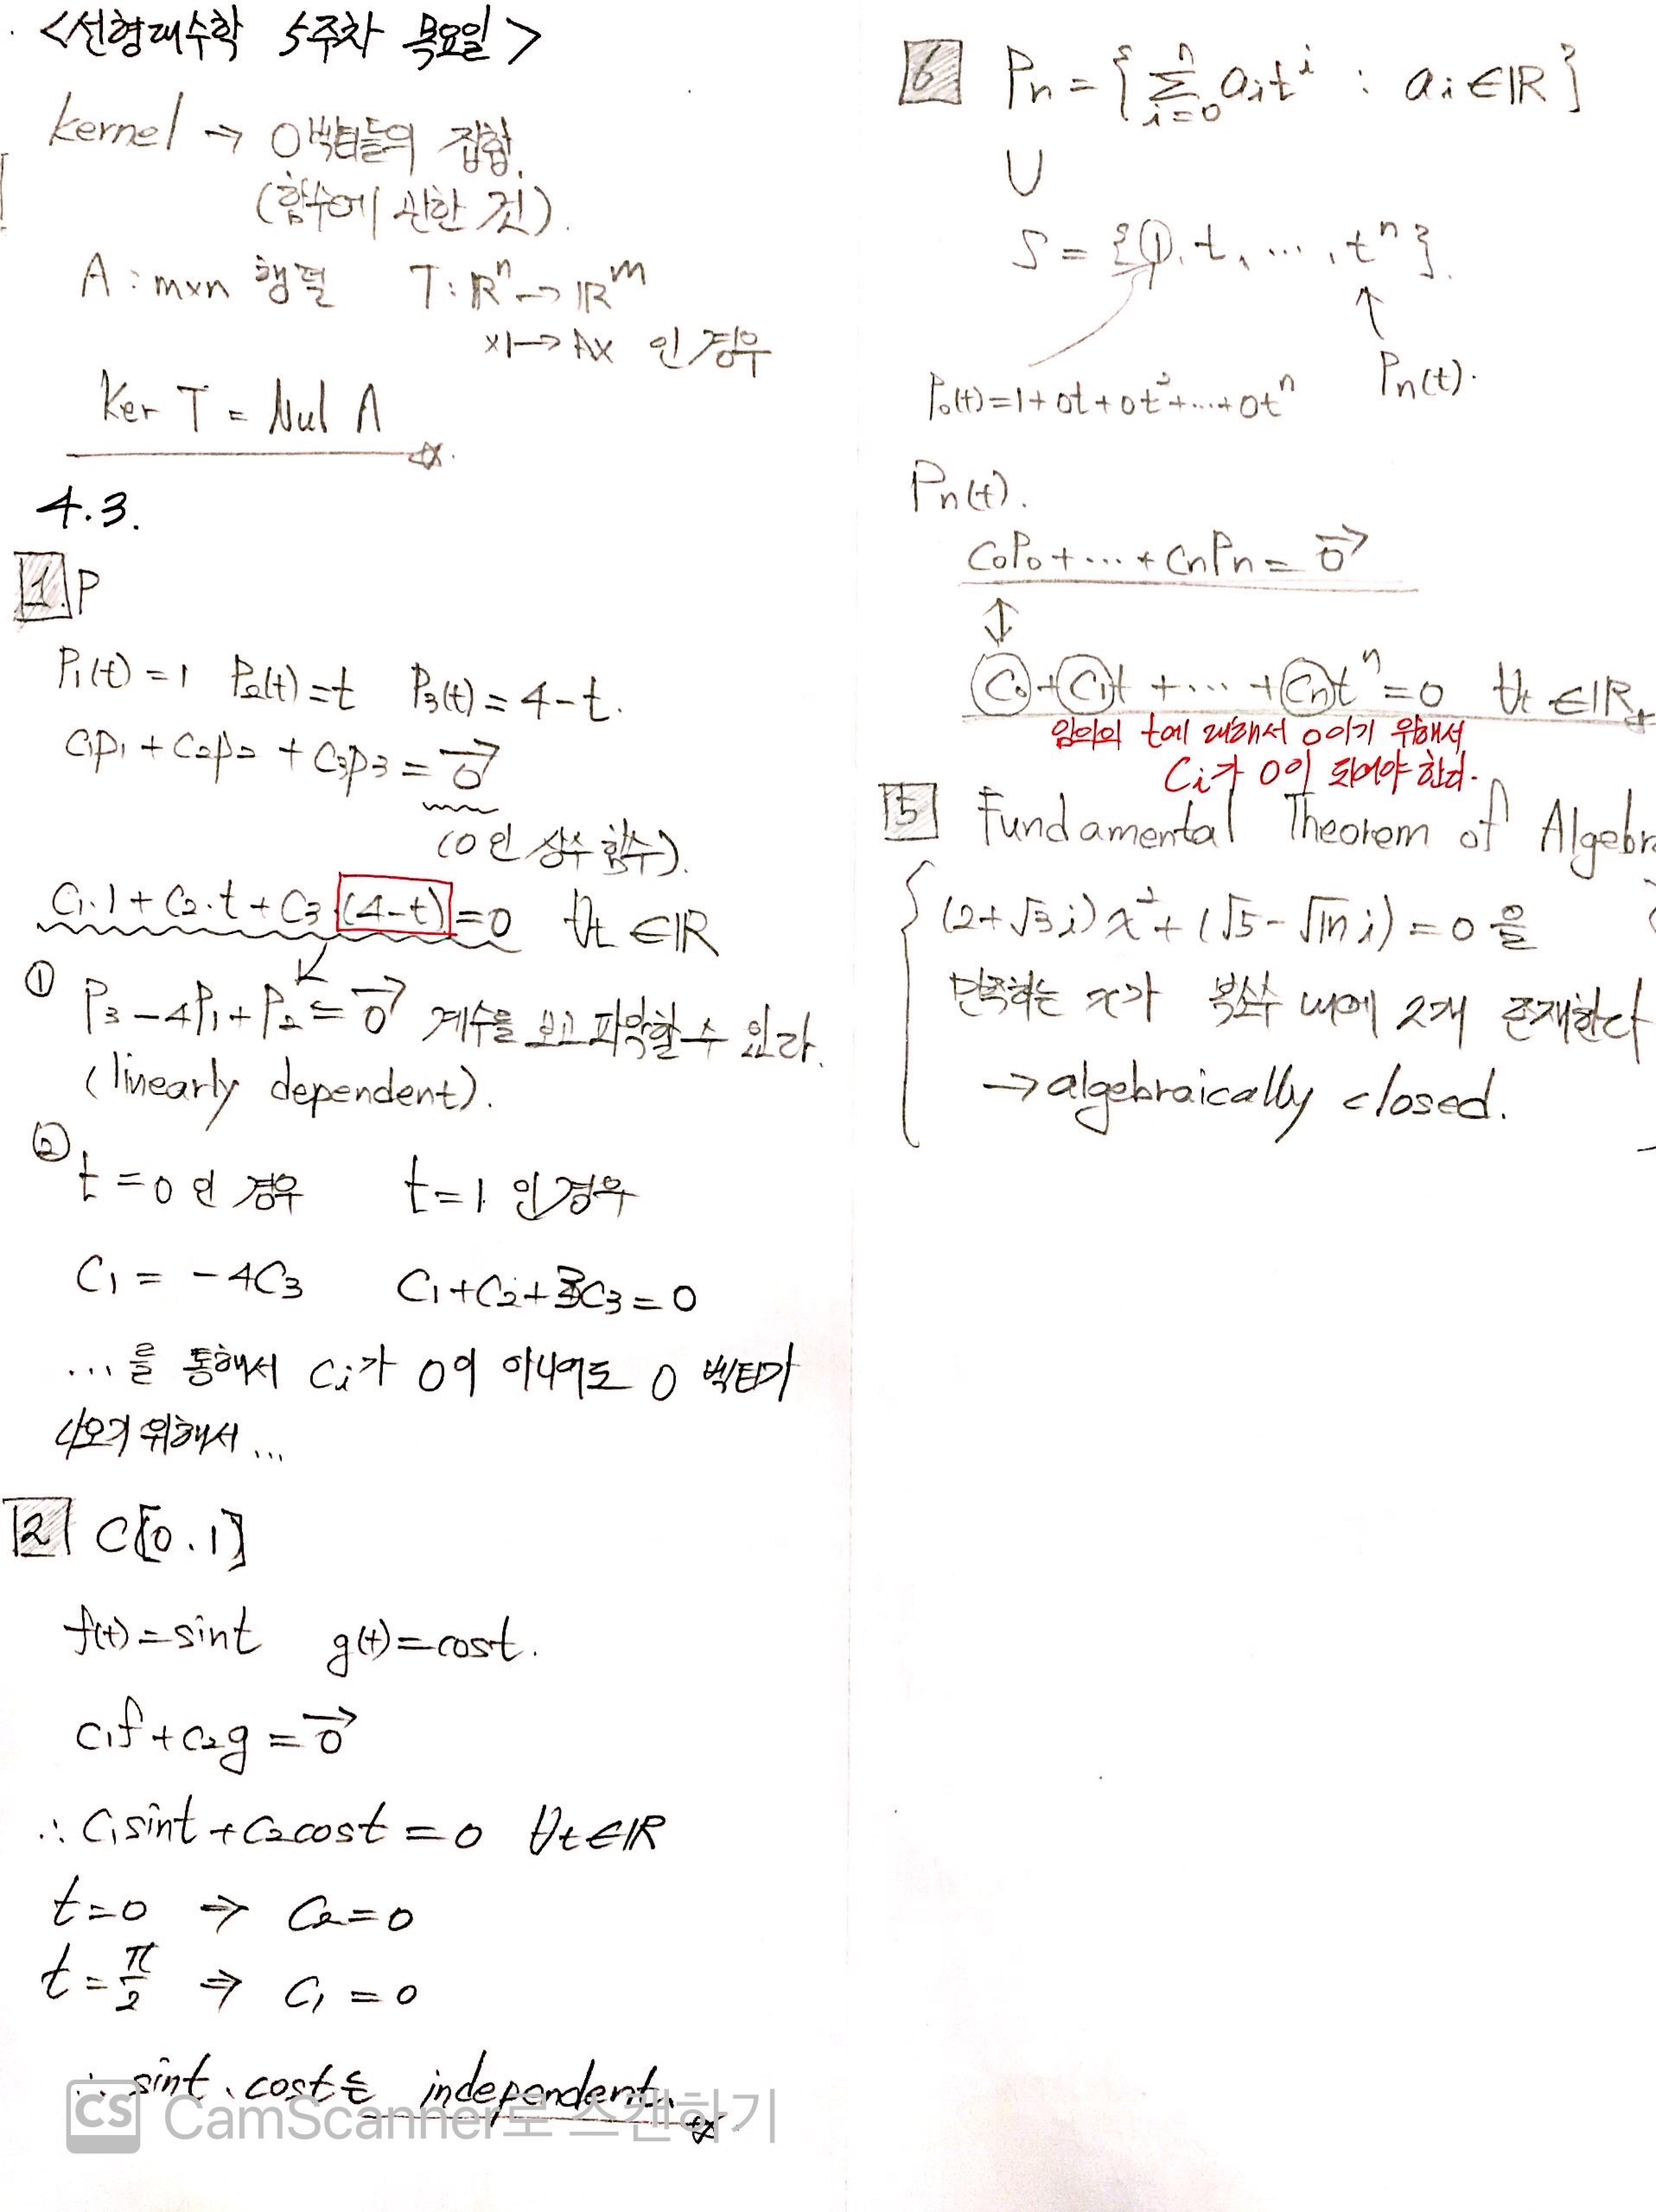 <선형대수학 5주차 목요일>
kernel → 0벡터들의 집합.
(함수에 관한 것).
A : m×n 행렬 T : ℝⁿ → ℝᵐ
x ↦ Ax 인 경우
Ker T = Nul A
4.3.
1. P
P₁(t) = 1 P₂(t) = t P₃(t) = 4-t.
C₁p₁ + C₂p₂ + C₃p₃ = 0⃗
(0인 상수 함수).
C₁·1 + C₂·t + C₃·(4-t) = 0 ∀t ∈ℝ
① P₃ - 4P₁ + P₂ = 0⃗ 계수를 보고 파악할 수 있다.
(linearly dependent).
② t = 0 인 경우 t = 1 인 경우
C₁ = -4C₃ C₁ + C₂ + 3C₃ = 0
...를 통해서 Ci가 0이 아니어도 0 벡터가
나오기 위해서...
2 C[0.1]
f(t) = sint g(t) = cost.
C₁f + C₂g = 0⃗
∴ C₁sint + C₂cost = 0 ∀t∈ℝ
t = 0 ⇒ C₂ = 0
t = π/2 ⇒ C₁ = 0
∴ sint, cost는 independent.
CS CamScanner로 스캔하기
6 Pn = { Σⁿᵢ₌₀ aᵢtⁱ : aᵢ ∈ℝ }
∪
S = {1, t, ..., tⁿ}.
↑
P₀(t) = 1 + 0t + 0t² + ... + 0tⁿ Pn(t).
Pn(t).
C₀P₀ + ... + CnPn = 0⃗
↕
C₀ + C₁t + ... + Cntⁿ = 0 ∀t ∈ℝ
임의의 t에 대해서 0이기 위해서
Ci가 0이 되어야 한다.
5 Fundamental Theorem of Algebra
(2+√3i)x² + (√5 - i) = 0 을
만족하는 x가 복소수 내에 2개 존재한다
→ algebraically closed.